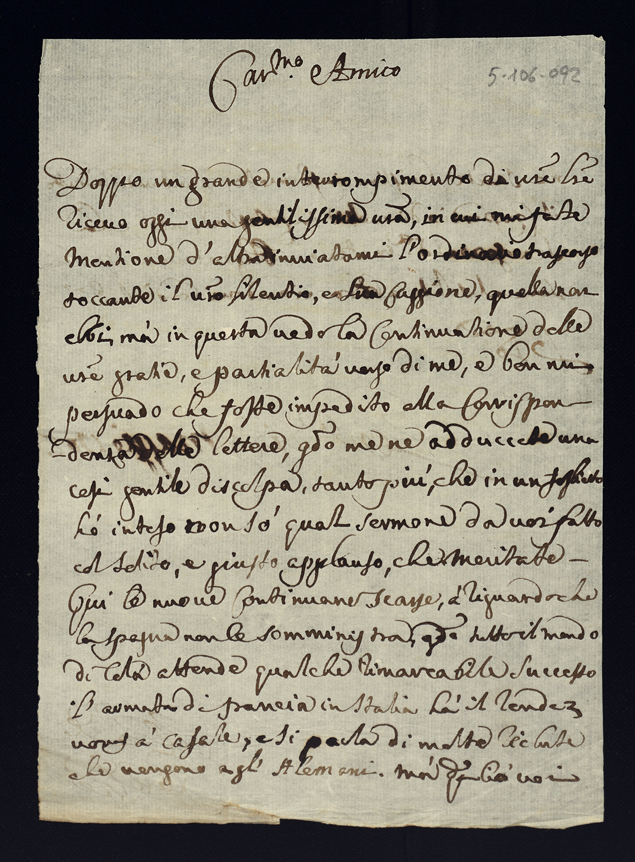 Car.mo Amico
5-106-092
Doppo un grande interrompimento di vre lre
ricevo oggi una gentilissima vra, in cui mi fate
mentione d'altra inviatami l'ordinario trascorso
toccante il vro silentio, e sua caggione, quella non
ebbi, mà in questa vedo la continuatione delle
vre gratie, e partialità verso di me, e ben mi
persuado che foste impedito alla Corrispon
denza delle lettere, qdo me ne adduccete una
cosi gentile discolpa, tanto più, che in un foglietto
hò inteso non sò qual sermone da voi fatto
col solito, e giusto applauso, che meritate -
Qui le nuove continuano scarse, à riguardo che
la spagna non le somministra, qdo tutto il mondo
di colà attende qualche rimarcabile successo
l'armata di francia in Italia hà il rendez
vous à Casale, e si parla di molte reclute
che vengono a gl' Alemani. mà